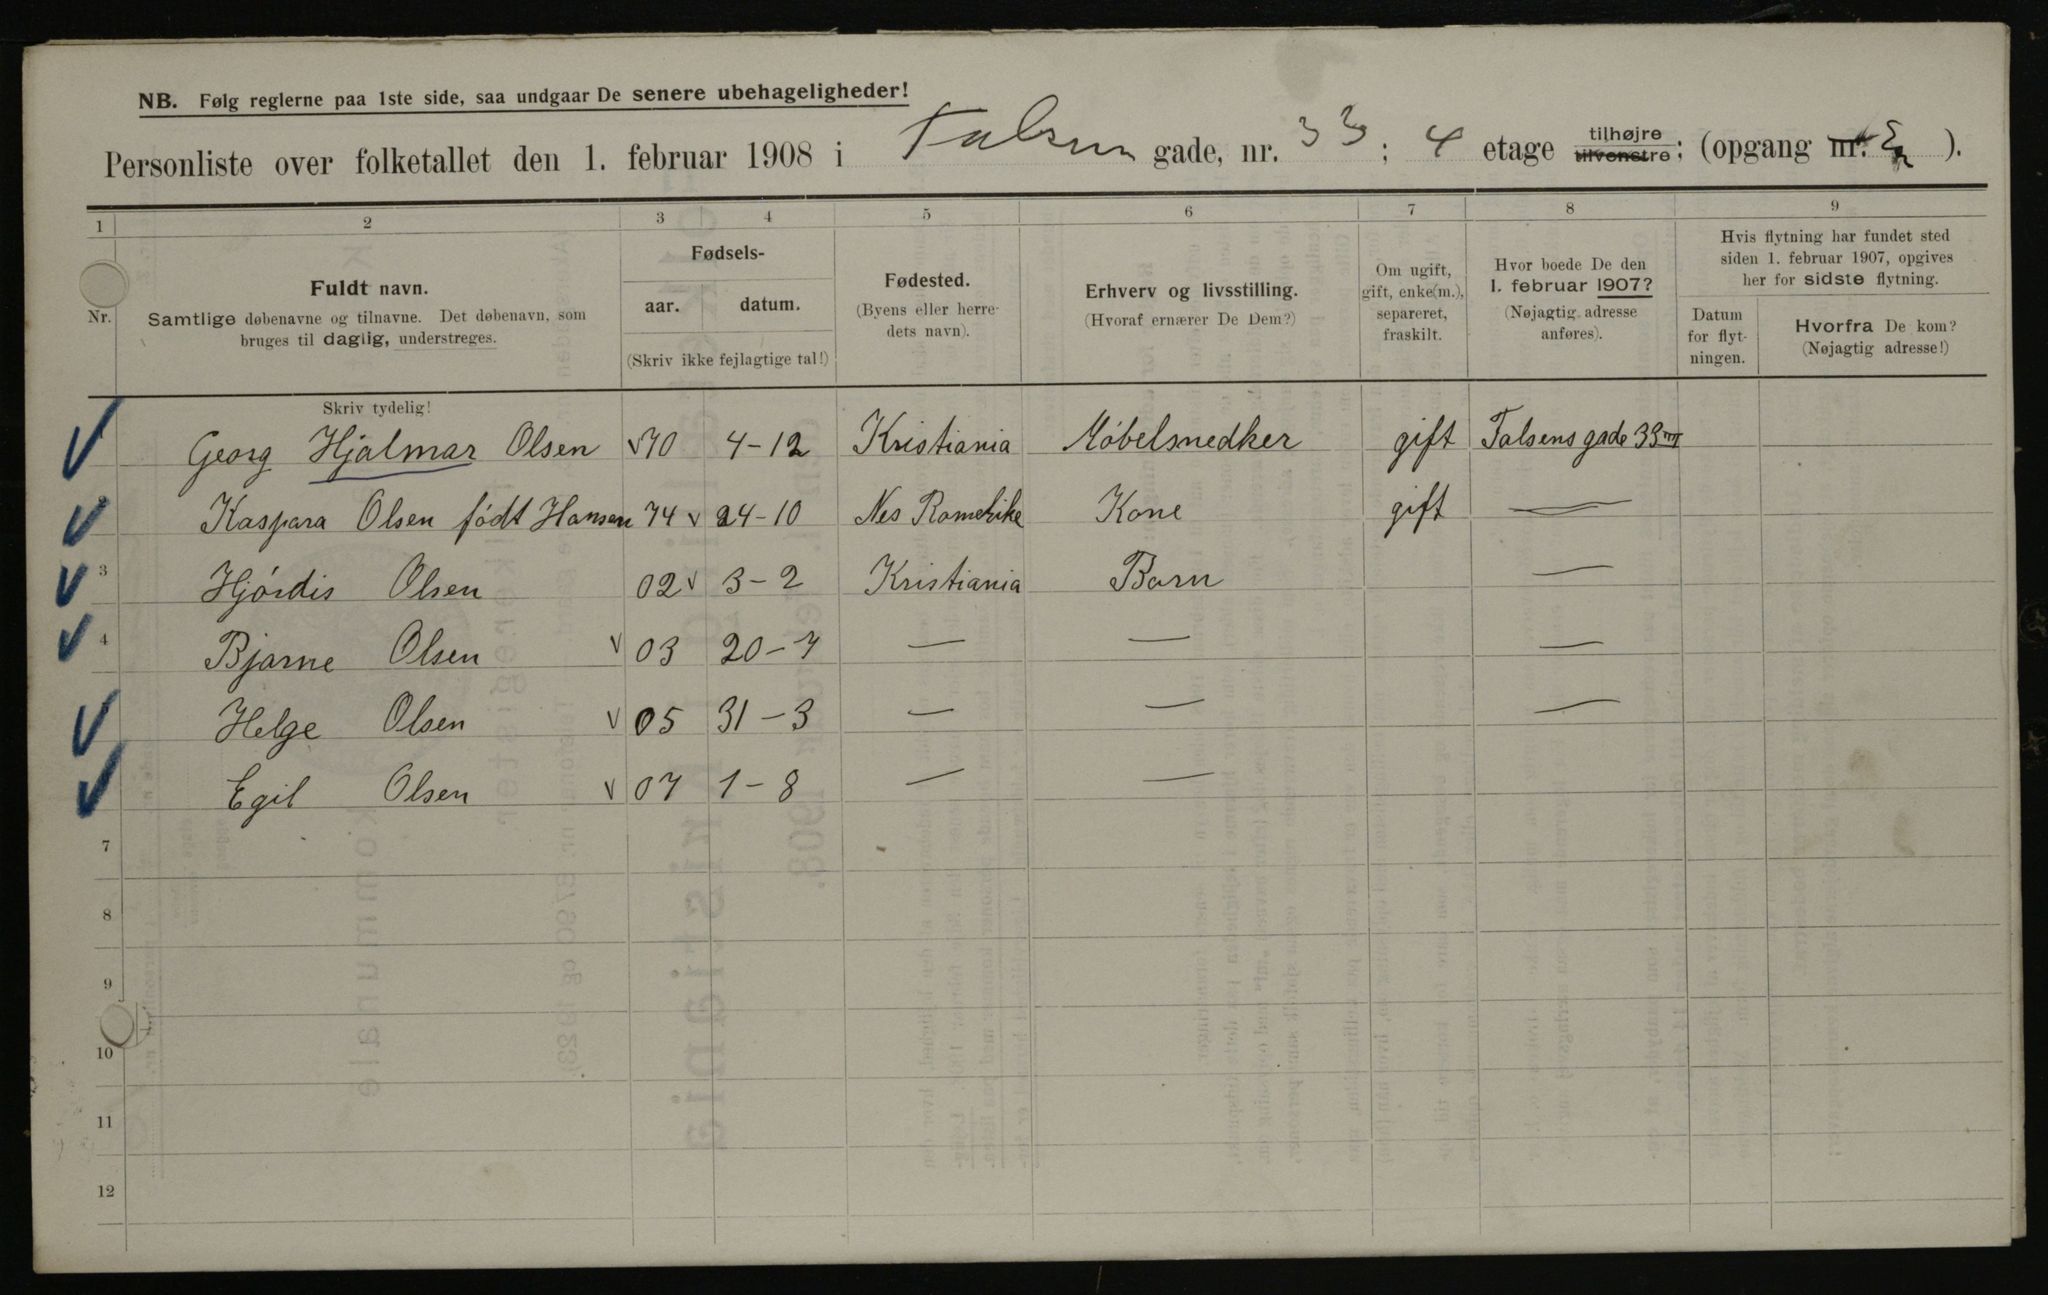 NB. Følg reglerne paa 1ste side, saa undgaar De senere ubehageligheder!
Personliste over folketallet den 1. februar 1908 i Falsens gade, nr. 33; 4 etage tilhøjre tilvenstre; (opgang nr. ).
1 2 3 4 5 6 7 8 9
Nr.
Fuldt navn.
Samtlige døbenavne og tilnavne. Det døbenavn, som
bruges til daglig, understreges.
Fødsels-
aar. datum.
(Skriv ikke fejlagtige tal!)
Fødested.
(Byens eller herre-
dets navn).
Erhverv og livsstilling.
(Hvoraf ernærer De Dem?)
Om ugift,
gift, enke(m.),
separeret,
fraskilt.
Hvor boede De den
1. februar 1907?
(Nøjagtig adresse
anføres).
Hvis flytning har fundet sted
siden 1. februar 1907, opgives
her for sidste flytning.
Datum
for flyt-
ningen.
Hvorfra De kom?
(Nøjagtig adresse!)
Skriv tydelig!
Georg Hjalmar Olsen 70 4-12 Kristiania Møbelsnedker gift Falsens gade 33 III
Kaspara Olsen født Hansen 74 24-10 Nes Romerike Kone gift —
3 Hjørdis Olsen 02 3-2 Kristiania Barn —
4 Bjarne Olsen 03 20-7 — — —
Helge Olsen 05 31-3 — — —
Egil Olsen 07 1-8 — —
7
8
9
10
11
12